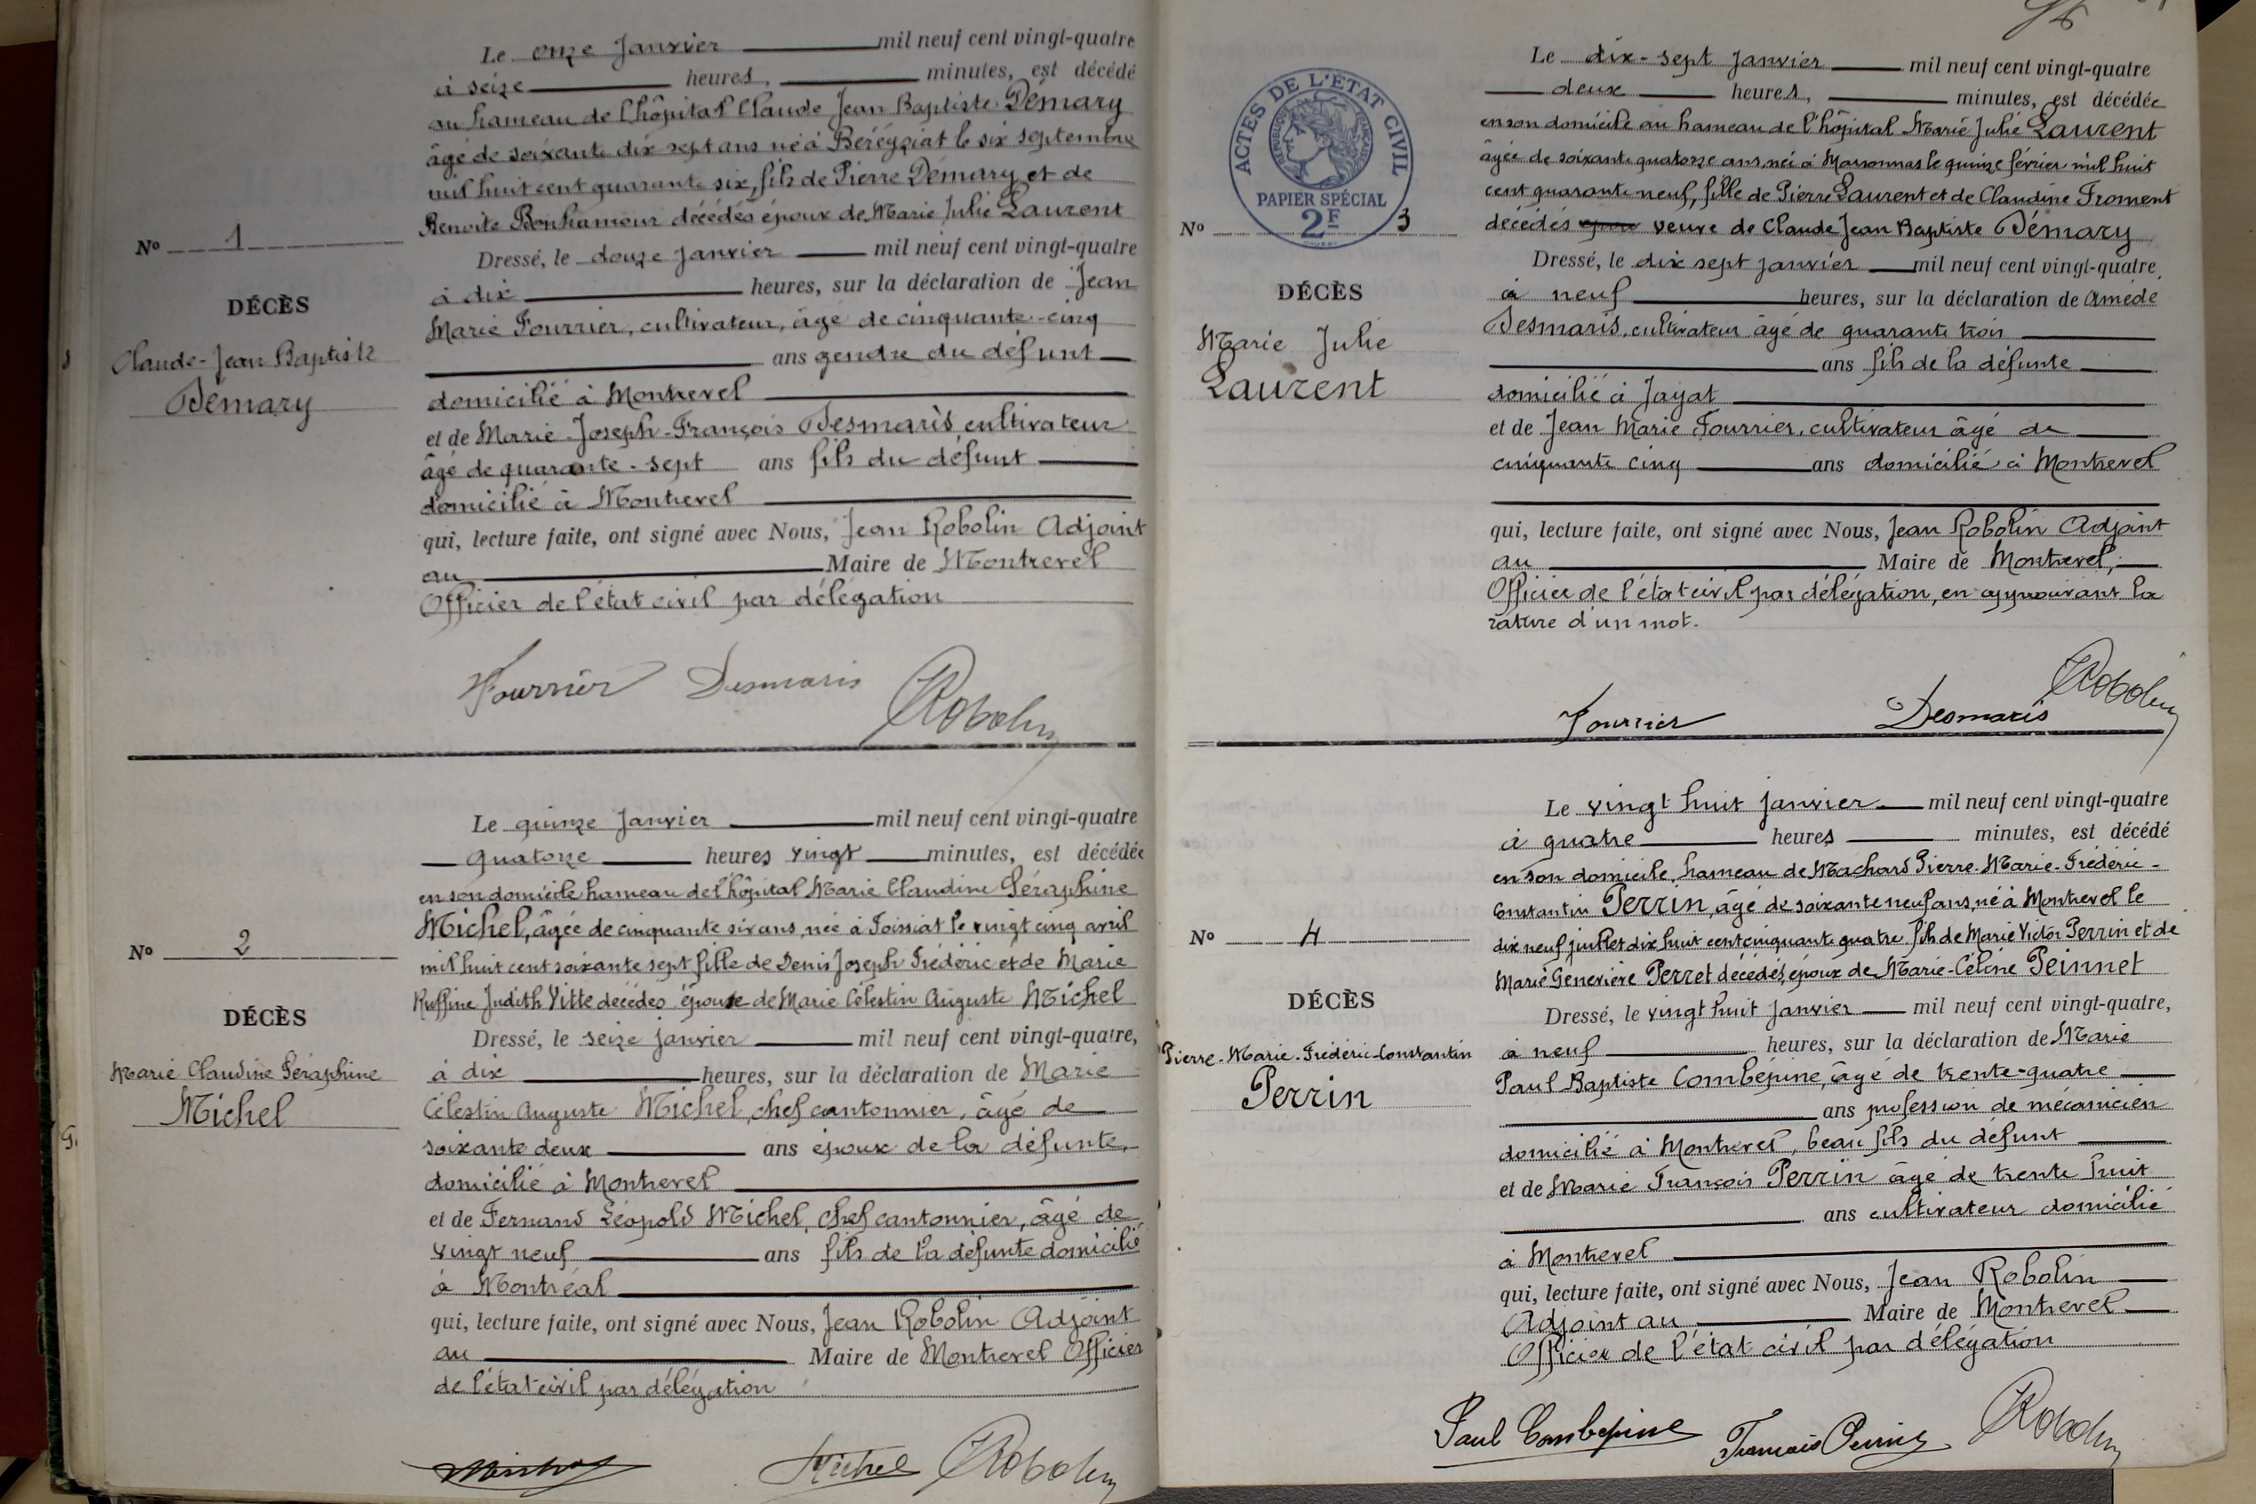 Le onze Janvier mil neuf cent vingt-quatre
à seize heures, minutes, est décédé
au hameau de l'hôpital Claude Jean Baptiste Démary
âgé de soixante dix sept ans né à Béréyziat le six septembre
mil huit cent quarante six, fils de Pierre Démary et de
Benoîte Bonhamour décédés époux de Marie Julie Laurent
No 1
Dressé, le douze janvier mil neuf cent vingt-quatre
à dix heures, sur la déclaration de Jean
DÉCÈS
Marie Fourrier, cultivateur, âgé de cinquante-cinq
Claude-Jean Baptiste
ans gendre du défunt
Démary
domicilié à Montrevel
et de Marie-Joseph-François Desmaris cultivateur
âgé de quarante-sept ans fils du défunt
domicilié à Montrevel
qui, lecture faite, ont signé avec Nous, Jean Robolin Adjoint
au Maire de Montrevel
Officier de l'état civil par délégation
Fourrier Desmaris Robolin
Le quinze Janvier mil neuf cent vingt-quatre
quatorze heures vingt minutes, est décédée
en son domicile hameau de l'hôpital Marie Claudine Séraphine
Michel, âgée de cinquante six ans, née à Foissiat le vingt cinq avril
No 2
mil huit cent soixante sept fille de Denis Joseph Frédéric et de Marie
Ruffine Judith Vitte décédés épouse de Marie Célestin Auguste Michel
DÉCÈS
Dressé, le seize janvier mil neuf cent vingt-quatre,
Marie Claudine Séraphine
à dix heures, sur la déclaration de Marie
Michel
Célestin Auguste Michel, chef cantonnier, âgé de
G.
soixante deux ans époux de la défunte,
domicilié à Montrevel
et de Fernand Léopold Michel, chef cantonnier, âgé de
vingt neuf ans fils de la défunte domicilié
à Montréal
qui, lecture faite, ont signé avec Nous, Jean Robolin Adjoint
au Maire de Montrevel Officier
de l'état civil par délégation
Michel Robolin
Le dix-sept janvier mil neuf cent vingt-quatre
deux heures, minutes, est décédée
en son domicile au hameau de l'hôpital Marie Julie Laurent
âgée de soixante quatorze ans, née à Marsonnas le quinze février mil huit
cent quarante neuf, fille de Pierre Laurent et de Claudine Froment
décédés veuve de Claude Jean Baptiste Démary
ACTES DE L'ÉTAT CIVIL
RÉPUBLIQUE FRANÇAISE
PAPIER SPÉCIAL
2F
No 3
Dressé, le dix sept janvier mil neuf cent vingt-quatre,
DÉCÈS
à neuf heures, sur la déclaration de Amédé
Marie Julie
Desmaris, cultivateur âgé de quarante trois
Laurent
ans fils de la défunte
domicilié à Jayat
et de Jean Marie Fourrier, cultivateur âgé de
cinquante cinq ans domicilié à Montrevel
qui, lecture faite, ont signé avec Nous, Jean Robolin Adjoint
au Maire de Montrevel,
Officier de l'état civil par délégation, en approuvant la
rature d'un mot.
Fourrier Desmaris Robolin
Le vingt huit janvier mil neuf cent vingt-quatre
à quatre heures minutes, est décédé
en son domicile, hameau de Machard Pierre-Marie-Frédéric-
Constantin Perrin, âgé de soixante neuf ans, né à Montrevel le
No 4
dix neuf juillet dix huit cent cinquante quatre fils de Marie Victor Perrin et de
Marie Geneviève Perret décédés, époux de Marie-Céline Peinnet
DÉCÈS
Dressé, le vingt huit janvier mil neuf cent vingt-quatre,
Pierre-Marie-Frédéric-Constantin
à neuf heures, sur la déclaration de Marie
Perrin
Paul Baptiste Combépine, âgé de trente-quatre
ans profession de mécanicien
domicilié à Montrevel, beau fils du défunt
et de Marie François Perrin âgé de trente huit
ans cultivateur domicilié
à Montrevel
qui, lecture faite, ont signé avec Nous, Jean Robolin
Adjoint au Maire de Montrevel
Officier de l'état civil par délégation
Paul Combépine François Perrin Robolin